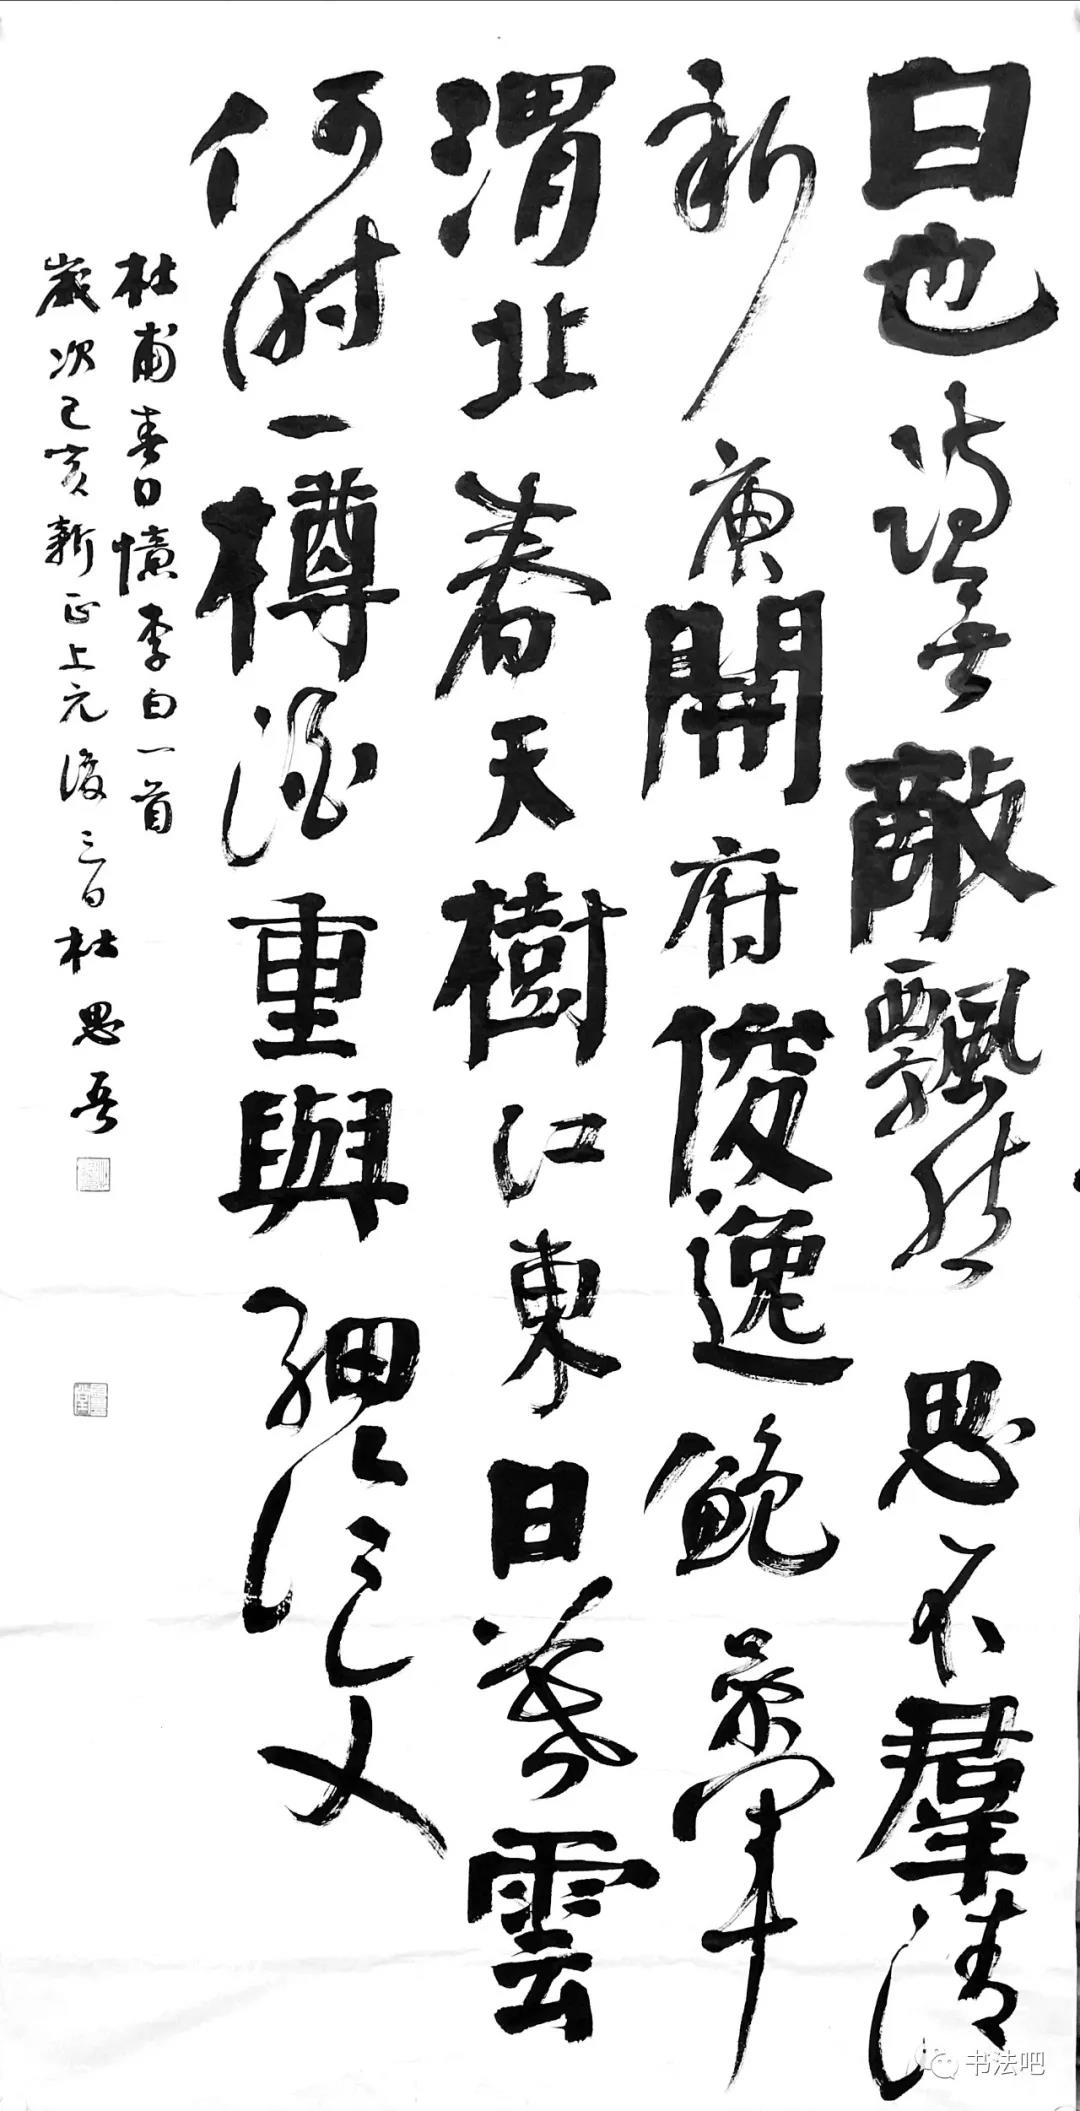 白也詩無敵飄然思不羣清
新庾開府俊逸鮑參軍
渭北春天樹江東日暮雲
何時一樽酒重與細論文
杜甫春日憶李白一首
歲次己亥新正上元後三日杜思吾
书法吧